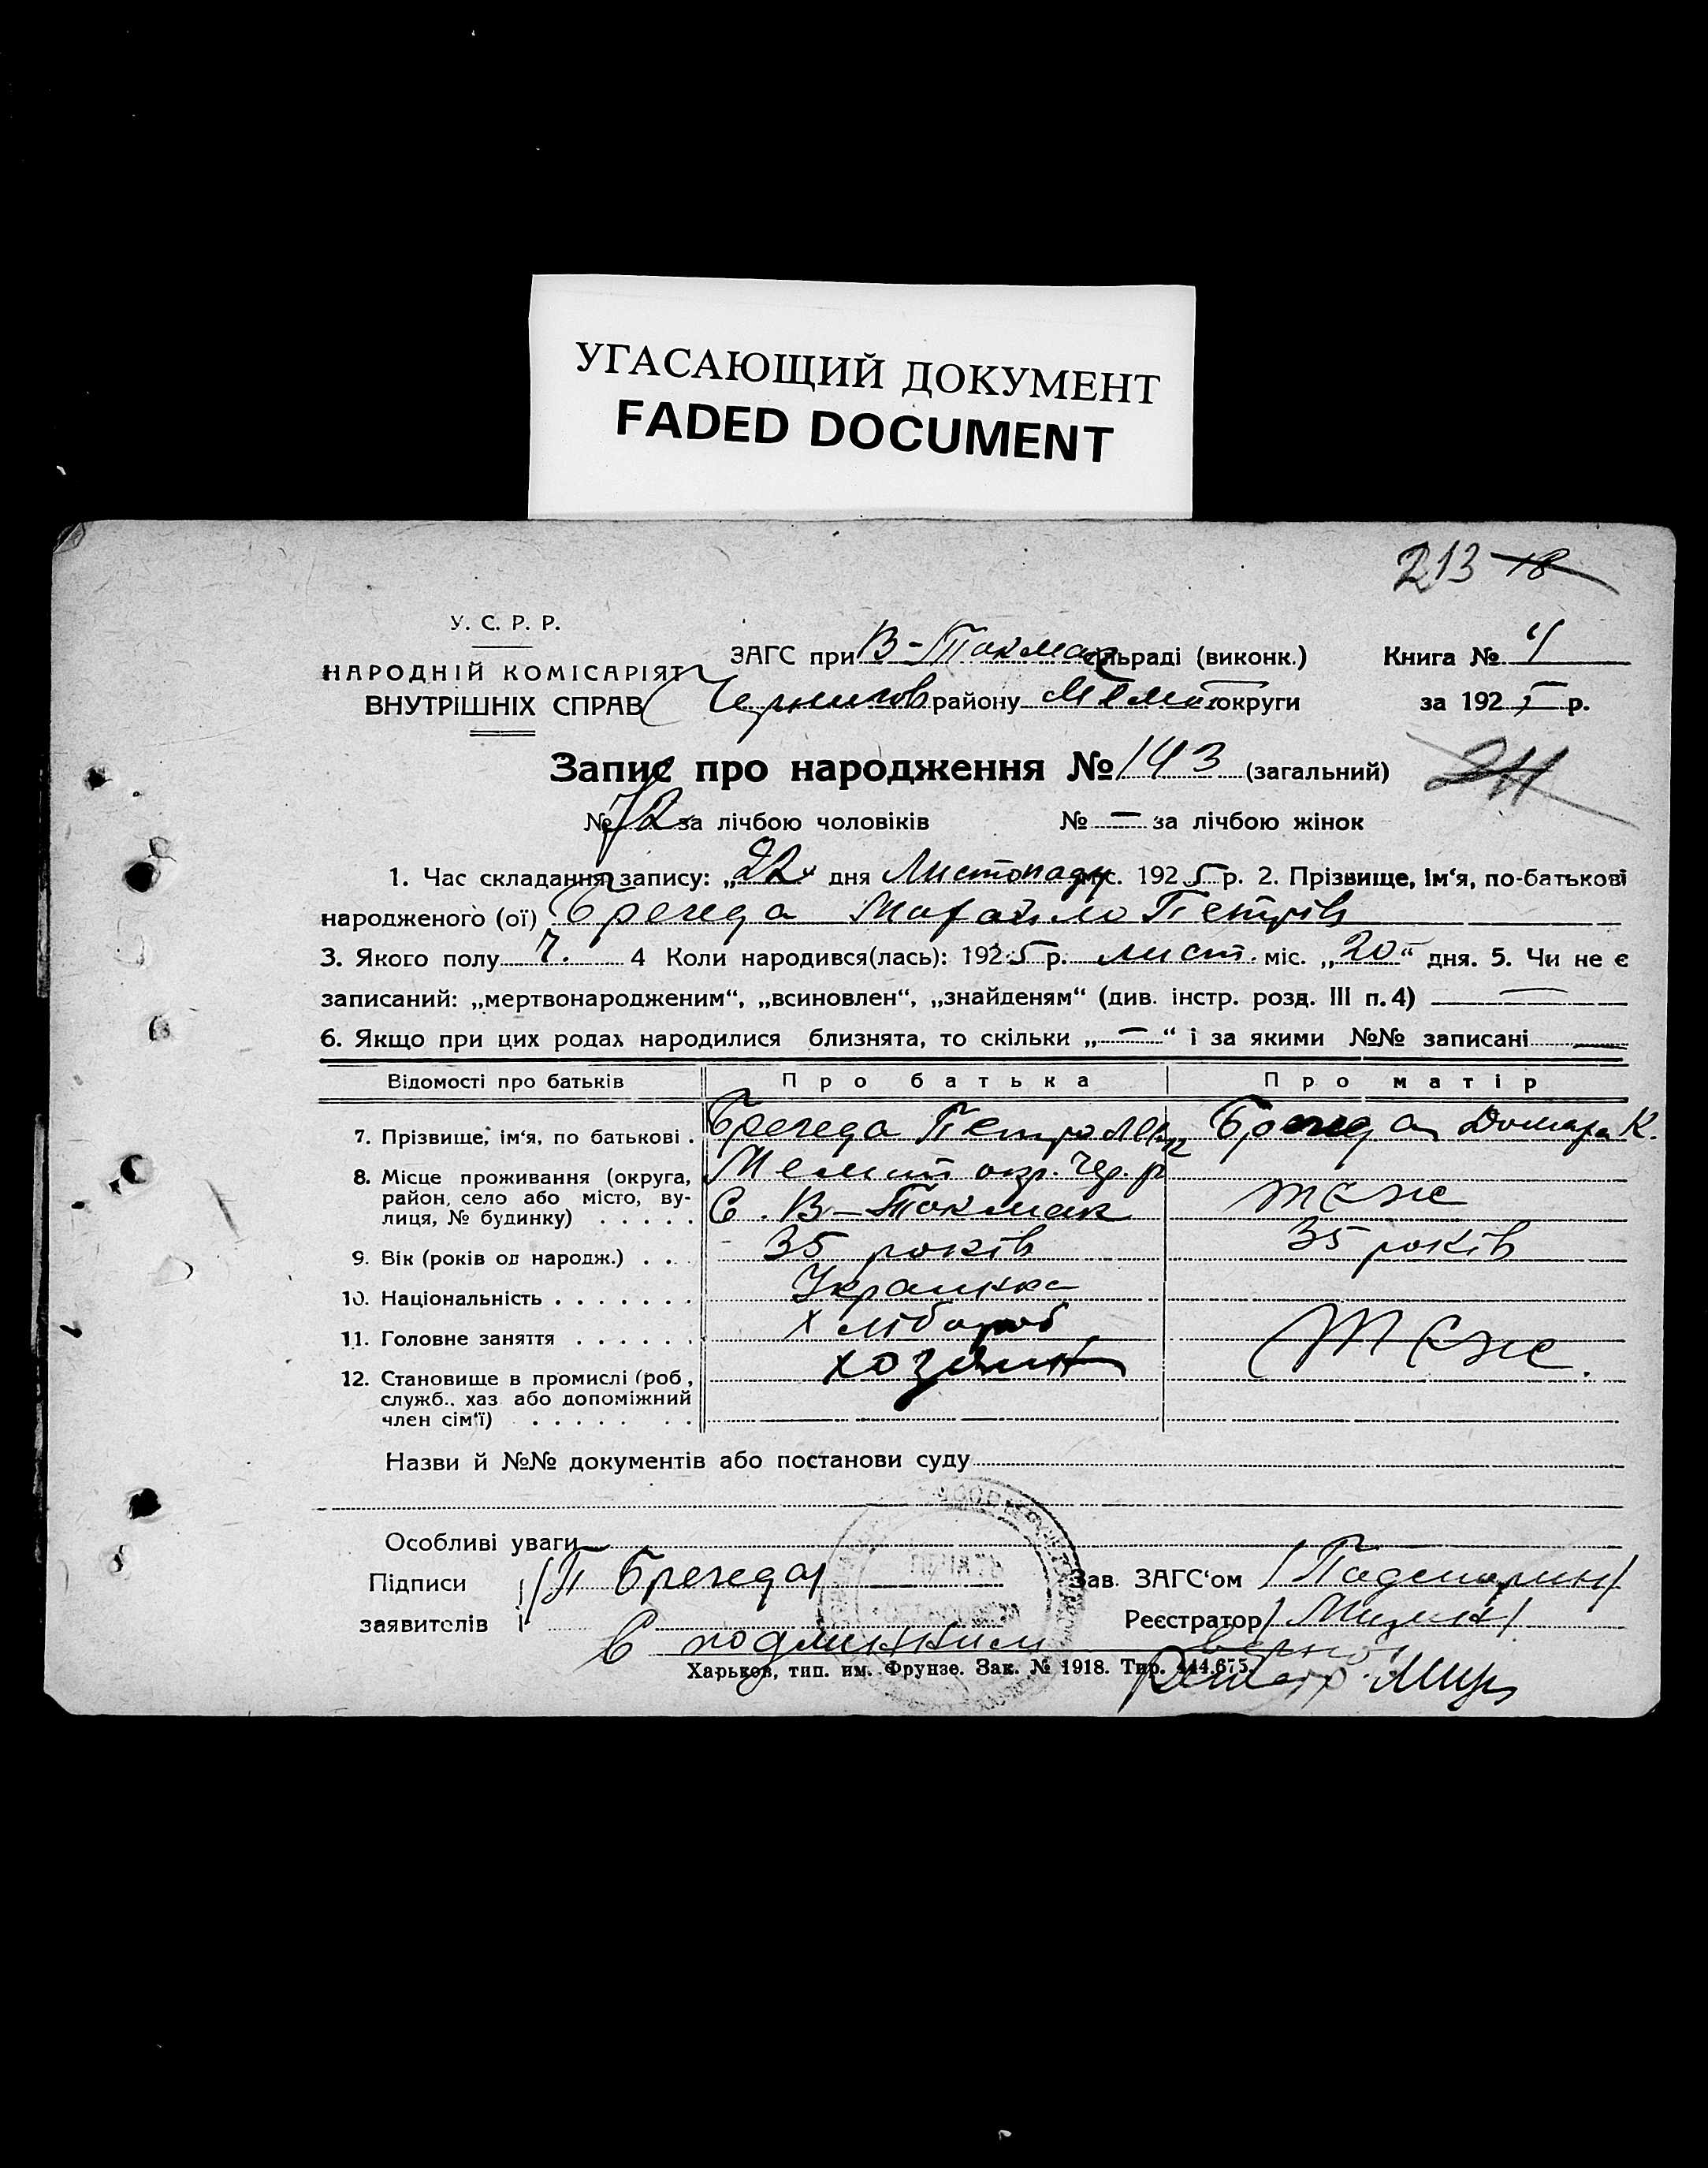 УГАСАЮЩИЙ ДОКУМЕНТ
FADED DOCUMENT
213 18
У. С. Р. Р.
НАРОДНІЙ КОМІСАРІЯТ
ВНУТРІШНІХ СПРАВ
ЗАГС при В-Токмак сільраді (виконк.)
Книга № 4
Чернигов району Меліт округи
за 1925 р.
Запис про народження № 143 (загальний)
211
№ 72 за лічбою чоловіків № — за лічбою жінок
1. Час складання запису: „22" дня Листопаду міс. 1925 р. 2. Прізвище, ім‘я, по-батькові
народженого (ої) Брегеда Михайло Петрів
3. Якого полу Ч. 4 Коли народився(лась): 1925 р. лист. міс. „20“ дня. 5. Чи не є
записаний: „мертвонародженим“, „всиновлен“, „знайденям“ (див. інстр. розд. III п. 4) —
6. Якщо при цих родах народилися близнята, то скільки „—“ і за якими №№ записані —
Відомості про батьків Про батька Про матір
7. Прізвище, ім‘я, по батькові . Брегеда Петро Брегеда Домара К.
8. Місце проживання (округа, Мелит окр. Чер. р
район, село або місто, ву-
лиця, № будинку) . . . . . С. В-Токмак тоже
9. Вік (років од народж.) . . . 35 років 35 років
10. Національність . . . . . . . Украинка
11. Головне заняття . . . . . . хлібороб тоже.
12. Становище в промислі (роб, хозяин
служб.. хаз або допоміжний
член сім‘ї) . . . . . . .
Назви й №№ документів або постанови суду
Особливі уваги
Підписи /П Брегеда/ Зав. ЗАГС‘ом
заявителів Реєстратор
С подлинним верно:
Харьков, тип. им. Фрунзе. Зак. № 1918. Тир. 444.675.